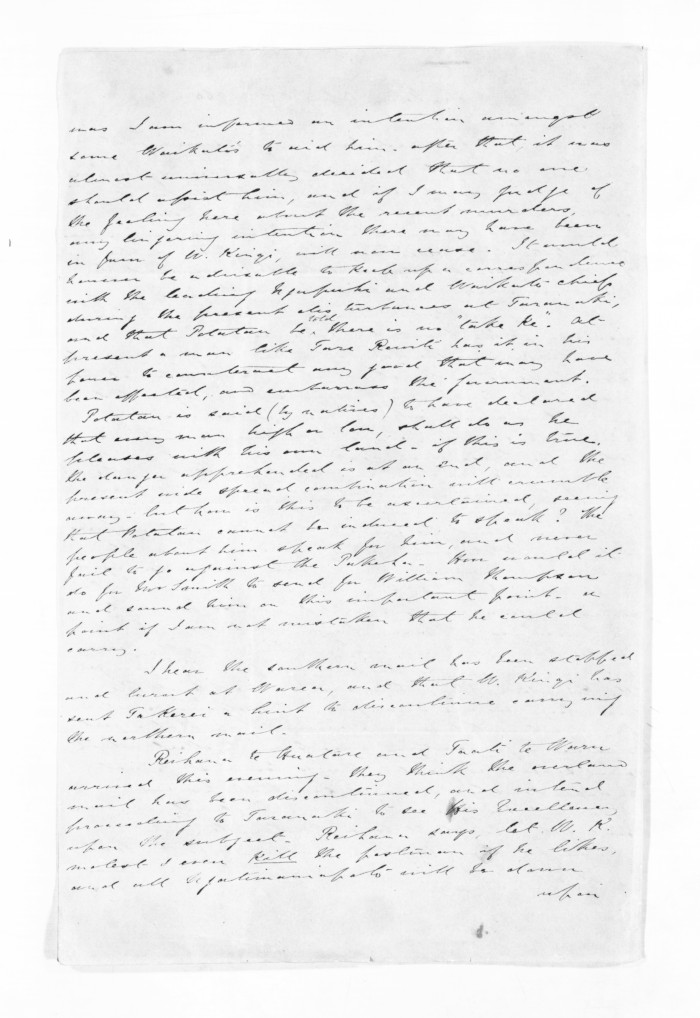 was I am informed an intention amongst
some Waikato's to aid him. after that, it was
almost universally decided that no one
should assist him, and if I may judge of
the feeling here about the recent murders,
any lingering intention there may have been
in favor of W. Kingi, will now cease. It would
however be advisable to keep up a correspondence
with the leading Ngapuhi and Waikato chiefs
during the present disturbances at Taranaki,
and that Potatau be told there is no "take ke". At
present a man like Tare has it in his
power to counteract any good that may have
been effected, and embarrass the government.
Potatau is said (by natives) to have declared
that every man high or low, shall do as he
pleases with his own land - if this is true,
the danger apprehended is at an end, and the
present wide spread combination will crumble
away - but how is this to be ascertained, seeing
that Potatau cannot be induced to speak? The
people about him speak for him, and never
fail to go against the Pakeha. How would it
do for Mr Smith to send for William Thompson
and sound him on this important point - a
point if I am not mistaken that he could
carry.
I hear the southern mail has been stopped
and burnt at Warea, and that W. Kingi has
sent Takerei a hint to discontinue carrying
the northern mail.
Reihana te Huatare and Taati te Waru
arrived this evening - they think the overland
mail has been discontinued, and intend
proceeding to Taranaki to see His Excellency
upon the subject. Reihana says, let W. K.
molest & even kill the postman if he likes,
and all Ngatimaniapoto will be down
upon